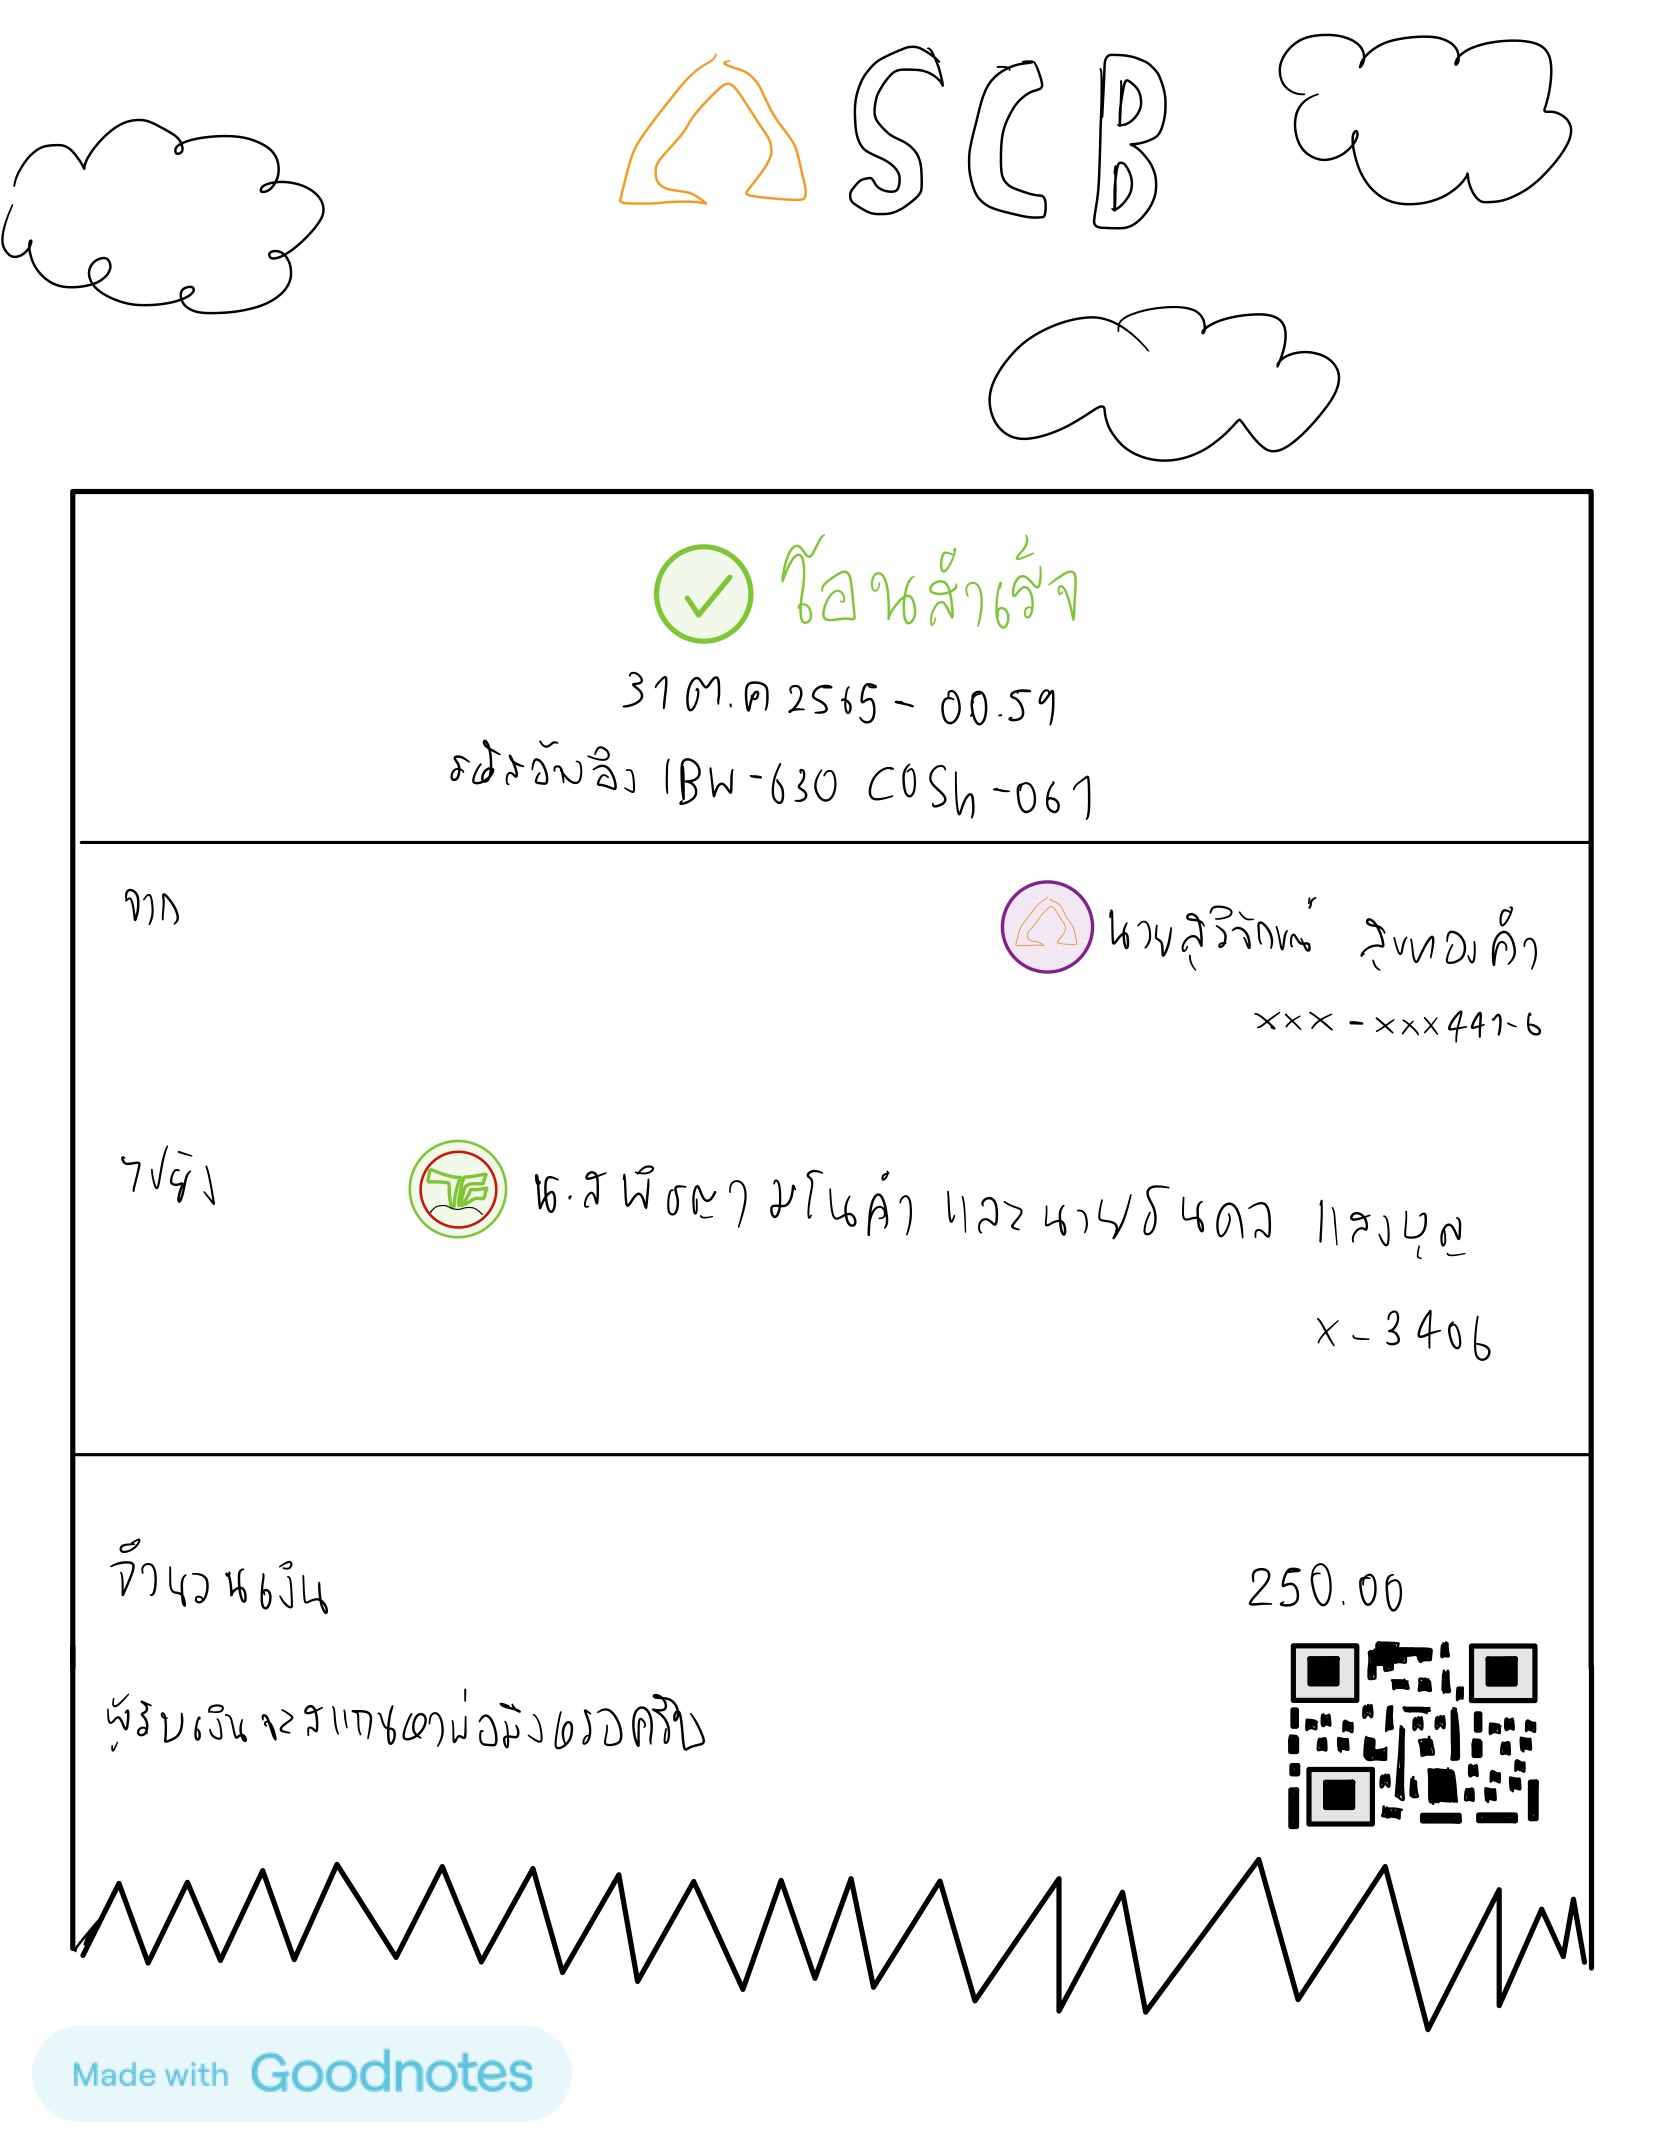 SCB
โอนสำเร็จ
31 ต.ค 2565 - 00.59
รหัสอ้างอิง IBW-630 COSh-061
จาก
นายสุริจักษณ์ สุขทองคำ
xxx - xxx441-6
ไปยัง
น.ส พิชญา มโนคำ และนายธนดล แสงบุญ
x - 3406
จำนวนเงิน
250.00
ผู้รับเงินจะสแกนหาพ่อมึงหรอครับ
Made with Goodnotes